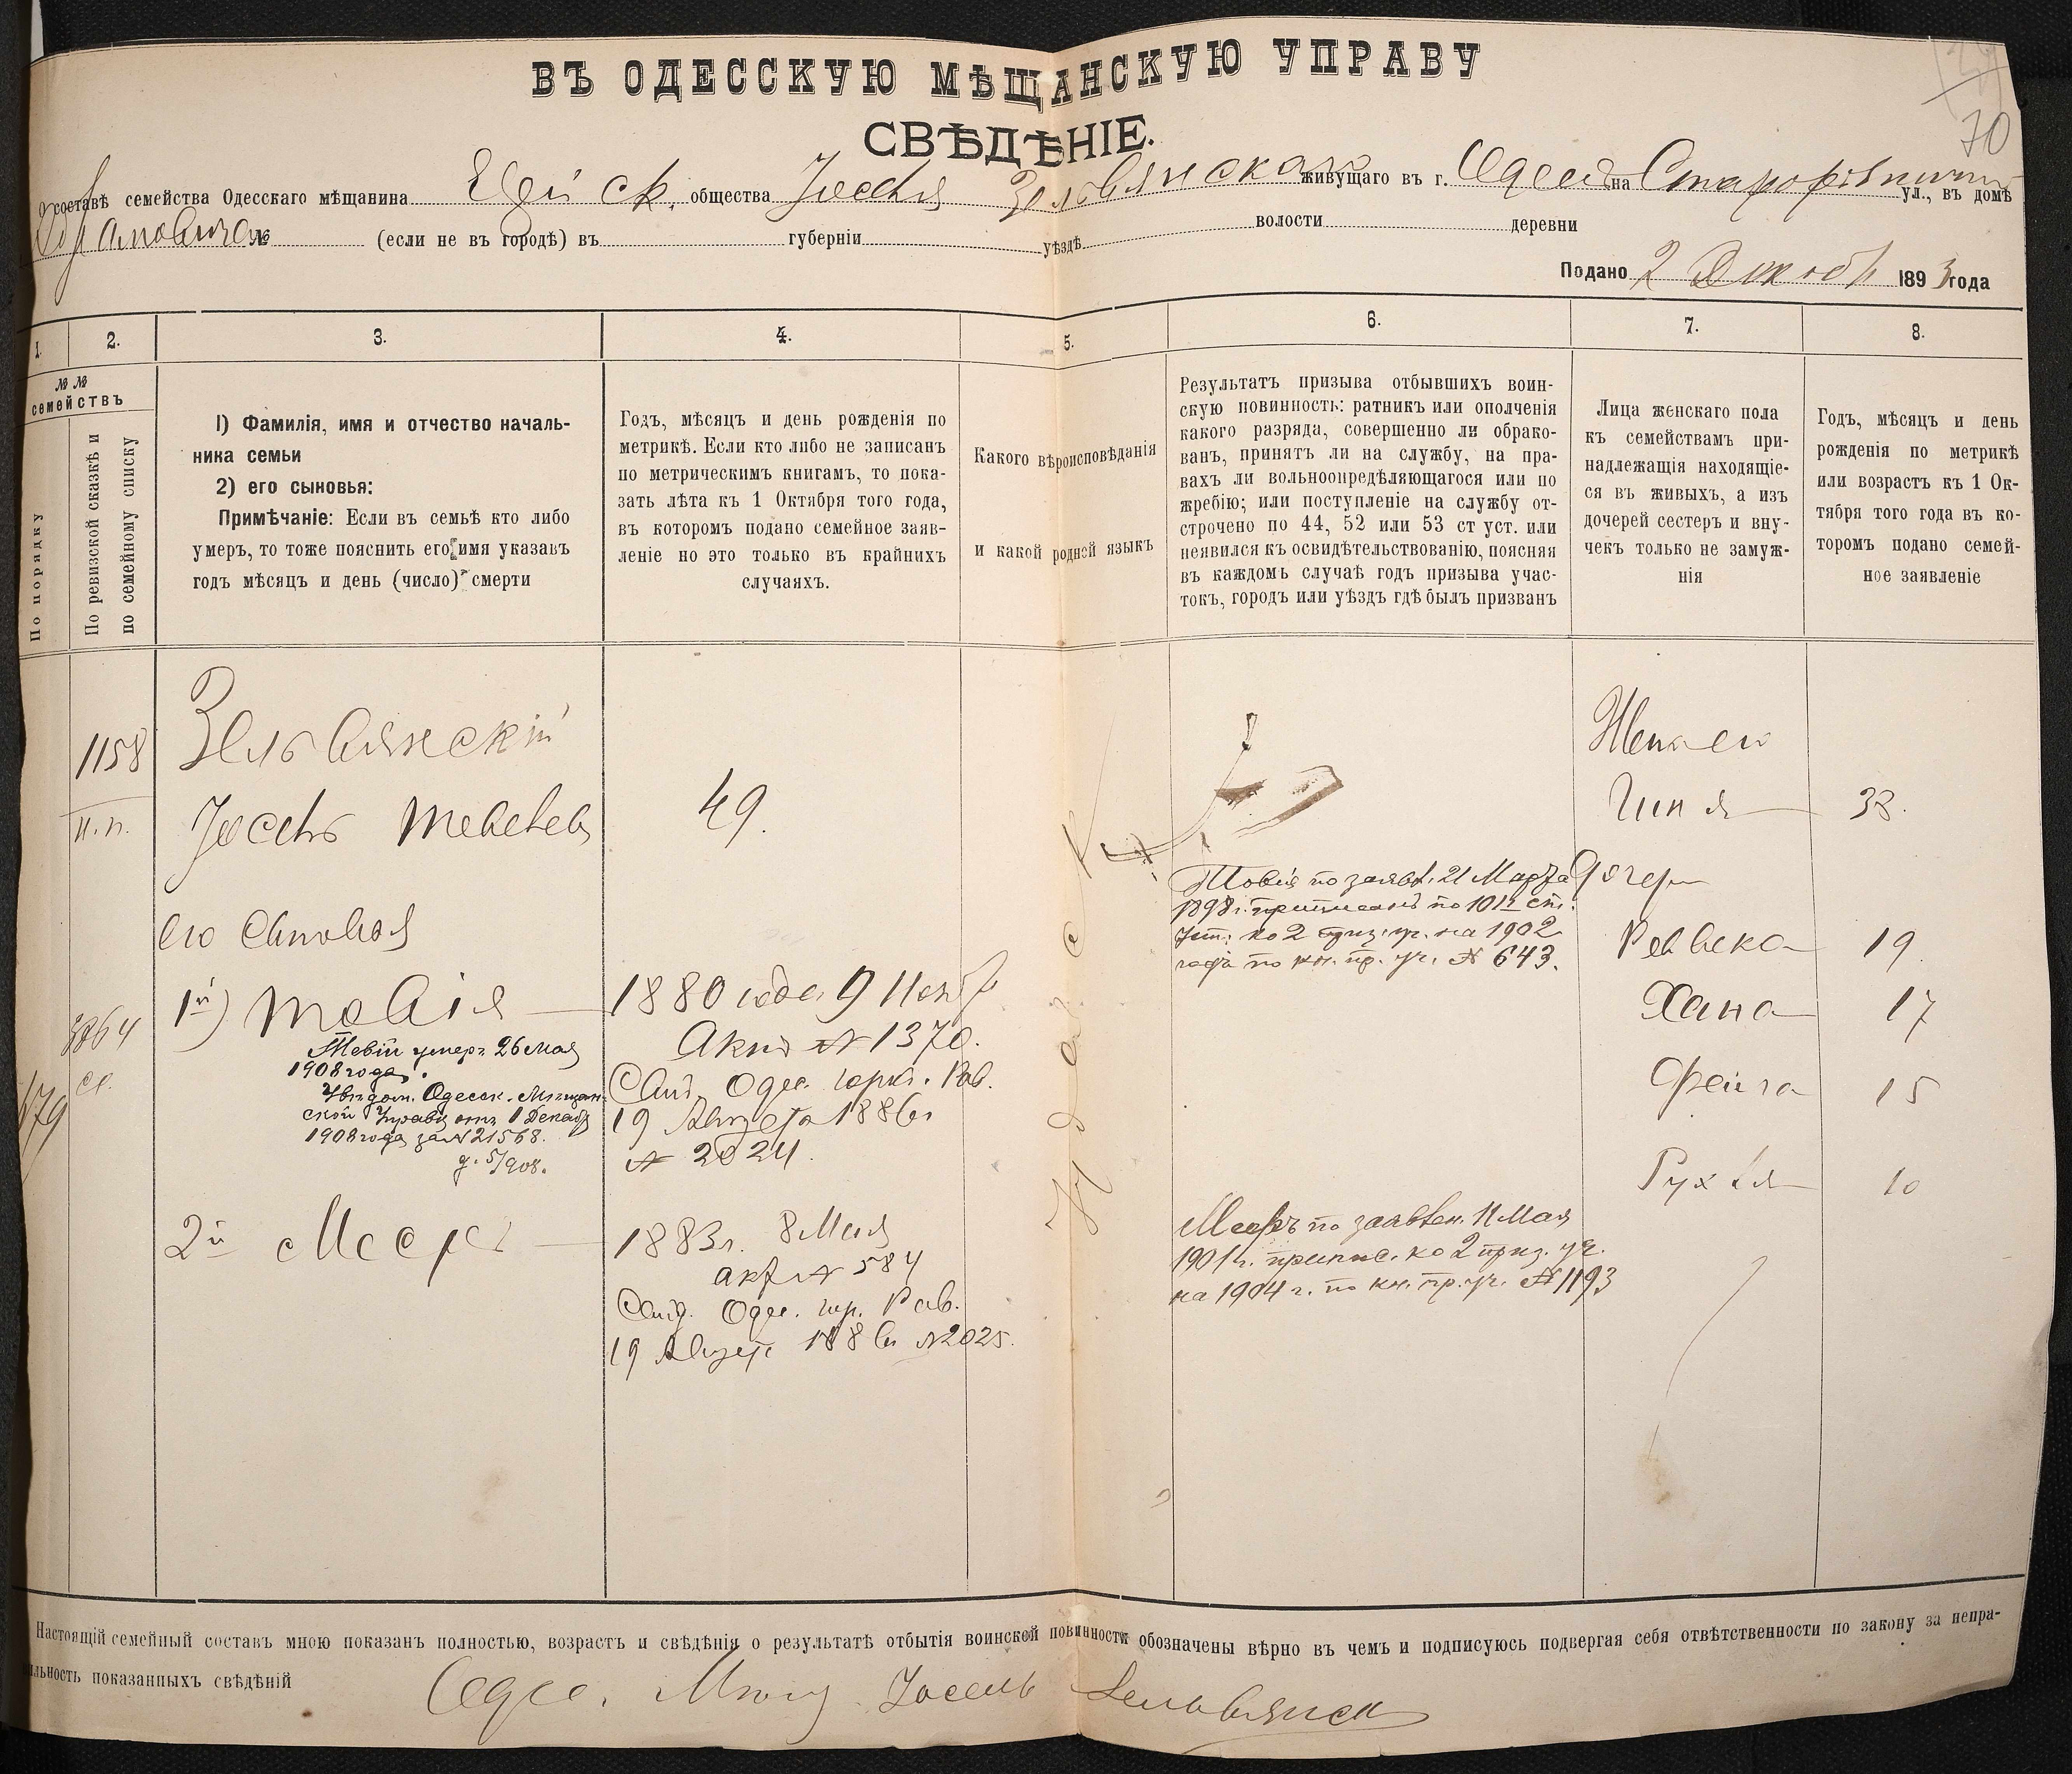 ВЪ ОДЕССКУЮ МѢЩАНСКУЮ УПРАВУ
СВѢДѢНІЕ.
70
О составѣ семейства Одесскаго мѣщанина Еврейск. общества Іоселя Зельвянскаго живущаго въ г. Одессѣ на Старорѣзничн ул., въ домѣ
№ (если не въ городѣ) въ губерніи уѣздѣ волости деревни
Подано 2 Декабр 1893 года
1.
2.
3.
4.
5.
6.
7.
8.
№№ семействъ
По порядку
По ревизской сказкѣ и
по семейному списку
1) Фамилія, имя и отчество началь-
ника семьи
2) его сыновья:
Примѣчаніе: Если въ семьѣ кто либо
умеръ, то тоже пояснить его имя указавъ
годъ мѣсяцъ и день (число) смерти
Годъ, мѣсяцъ и день рожденія по
метрикѣ. Если кто либо не записанъ
по метрическимъ книгамъ, то пока-
зать лѣта къ 1 Октября того года,
въ которомъ подано семейное заяв-
леніе но это только въ крайнихъ
случаяхъ.
Какого вѣроисповѣданія
и какой родной языкъ
Результатъ призыва отбывшихъ воин-
скую повинность: ратникъ или ополченія
какого разряда, совершенно ли обрако-
ванъ, принятъ ли на службу, на пра-
вахъ ли вольноопредѣляющагося или по
жребію; или поступленіе на службу от-
строчено по 44, 52 или 53 ст уст. или
неявился къ освидѣтельствованію, поясняя
въ каждомъ случаѣ годъ призыва учас-
токъ, городъ или уѣздъ гдѣ былъ призванъ
Лица женскаго пола
къ семействамъ при-
надлежащія находящіе-
ся въ живыхъ, а изъ
дочерей сестеръ и вну-
чекъ только не замуж-
нія
Годъ, мѣсяцъ и день
рожденія по метрикѣ
или возрастъ къ 1 Ок-
тября того года въ ко-
торомъ подано семей-
ное заявленіе
1158
н. п.
Зельвянскій
Іосель Тевелев
49.
его сыновья
1й) Товія
Товій умеръ 26 Мая
1908 года.
Увѣдом. Одесск. Мѣщан-
ской Управы отъ 1 Декабр
1908 года за № 21568.
179
1880 года 9 Нояб
Актъ № 1370.
Свид. Одес. город. Рав.
19 Августа 1886 г
№ 2024.
2й Мееръ
1883 г. 8 Мая
акт № 584
Свид. Одес. гор. Рав.
19 Август 1886 г №2025.
Іудейск
Товія по заявл. 21 Марта
1898 г. приписанъ по 101 ст.
Уст. ко 2 приз. уч. на 1902
года по кн. пр. уч. № 643.
Мееръ по заявлен. 11 Мая
1901 г. припис. ко 2 приз. уч.
на 1904 г. по кн. пр. уч. № 1193
Жена его
Гиня 38.
Дочери
Ревека 19
Хана 17
Фейга 15
Рухля 10
Настоящій семейный составъ мною показанъ полностью, возрастъ и свѣдѣнія о результатѣ отбытія воинской повинности обозначены вѣрно въ чемъ и подписуюсь подвергая себя отвѣтственности по закону за непра-
вильность показанныхъ свѣдѣній
Одес. Мѣщ. Іосель Зельвянск